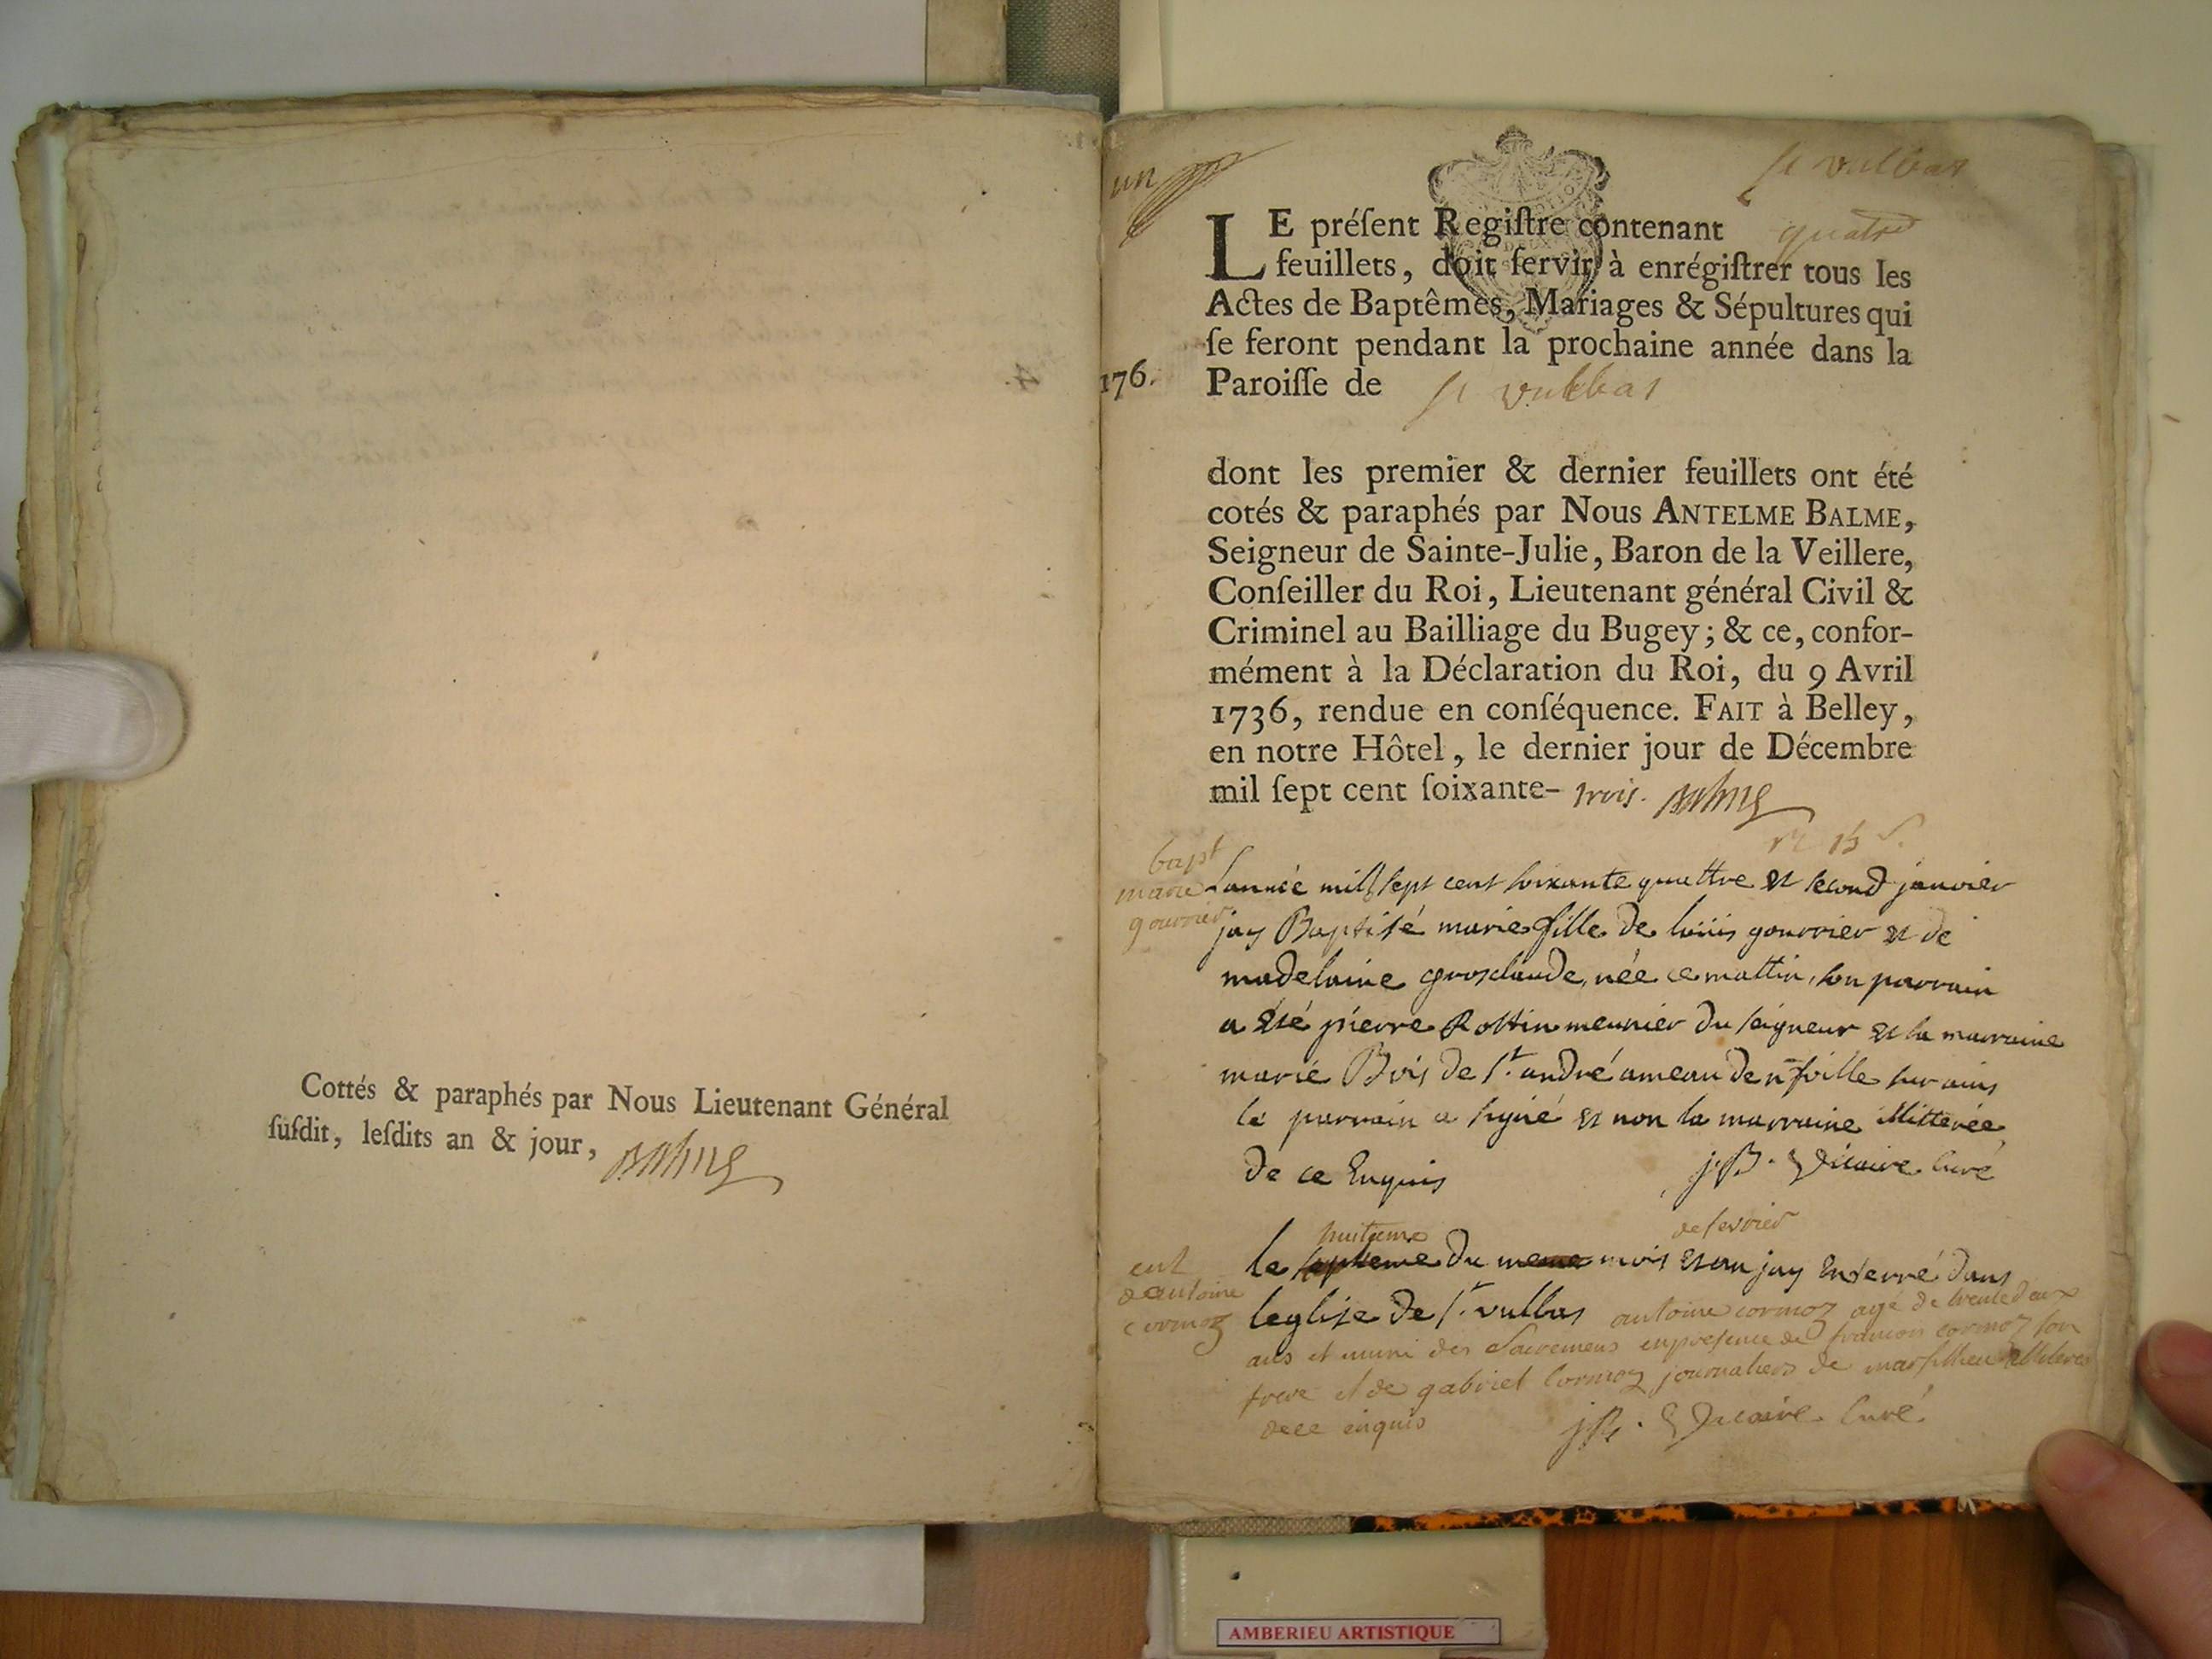 Cottés & paraphés par Nous Lieutenant Général
ſuſdit, leſdits an & jour, Balme
un
St vulbas
LE préſent Regiſtre contenant quatre
feuillets, doit ſervir à enrégiſtrer tous les
Actes de Baptêmes, Mariages & Sépultures qui
ſe feront pendant la prochaine année dans la
176.
Paroiſſe de St vulbas
dont les premier & dernier feuillets ont été
cotés & paraphés par Nous ANTELME BALME,
Seigneur de Sainte-Julie, Baron de la Veillere,
Conſeiller du Roi, Lieutenant général Civil &
Criminel au Bailliage du Bugey; & ce, confor-
mément à la Déclaration du Roi, du 9 Avril
1736, rendue en conſéquence. FAIT à Belley,
en notre Hôtel, le dernier jour de Décembre
mil ſept cent ſoixante- trois. Balme
bapt
marie
gourrier
Lannée mill sept cent soixante quattre et second janvier
jay Baptisé marie fille de loüis gourrier et de
madelaine grosclaude, née ce mattin, son parrain
a été pierre Rottin meunier du seigneur et la marraine
marie Bois de st. andré ameau de ville sur ains
le parrain a signé et non la marraine illitterée
de ce Enquis j.B. Dicaire Curé
ent
dantoine
cormoz
huitieme de fevrier
le septieme du meme mois et an jay Enterré dans
leglise de st. vulbas antoine cormoz agé de trente deux
ans et muni des Sacremens enpresence de francois cormoz son
frere et de gabriel Cormoz journaliers de marsillieu illiterés
dece enquis j.B. Dicaire Curé
AMBERIEU ARTISTIQUE